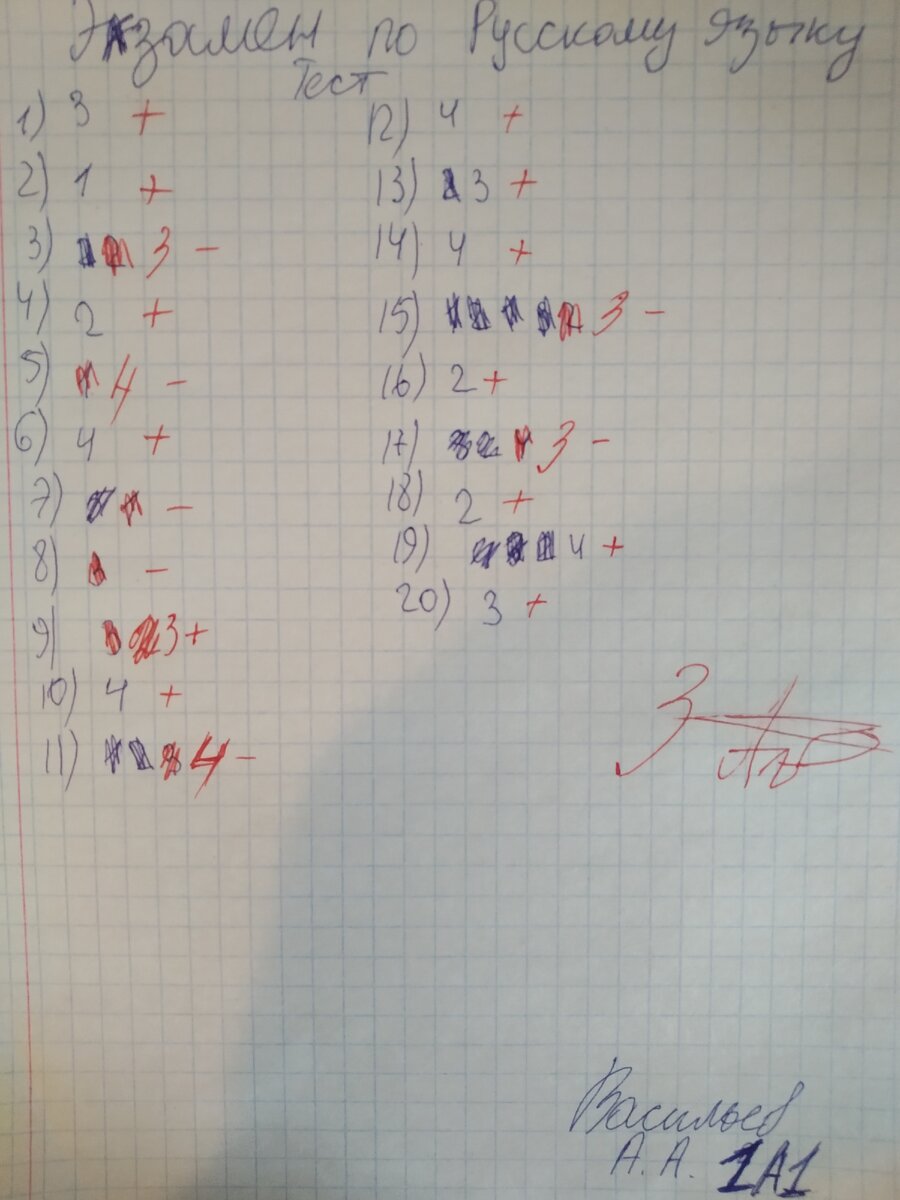 Экзамен по Русскому языку
Тест
1) 3 +
2) 1 +
3) 3 -
4) 2 +
5) 4 -
6) 4 +
7) -
8) -
9) 3 +
10) 4 +
11) 4 -
12) 4 +
13) 3 +
14) 4 +
15) 3 -
16) 2 +
17) 3 -
18) 2 +
19) 4 +
20) 3 +
3
Васильев
А. А. 1А1